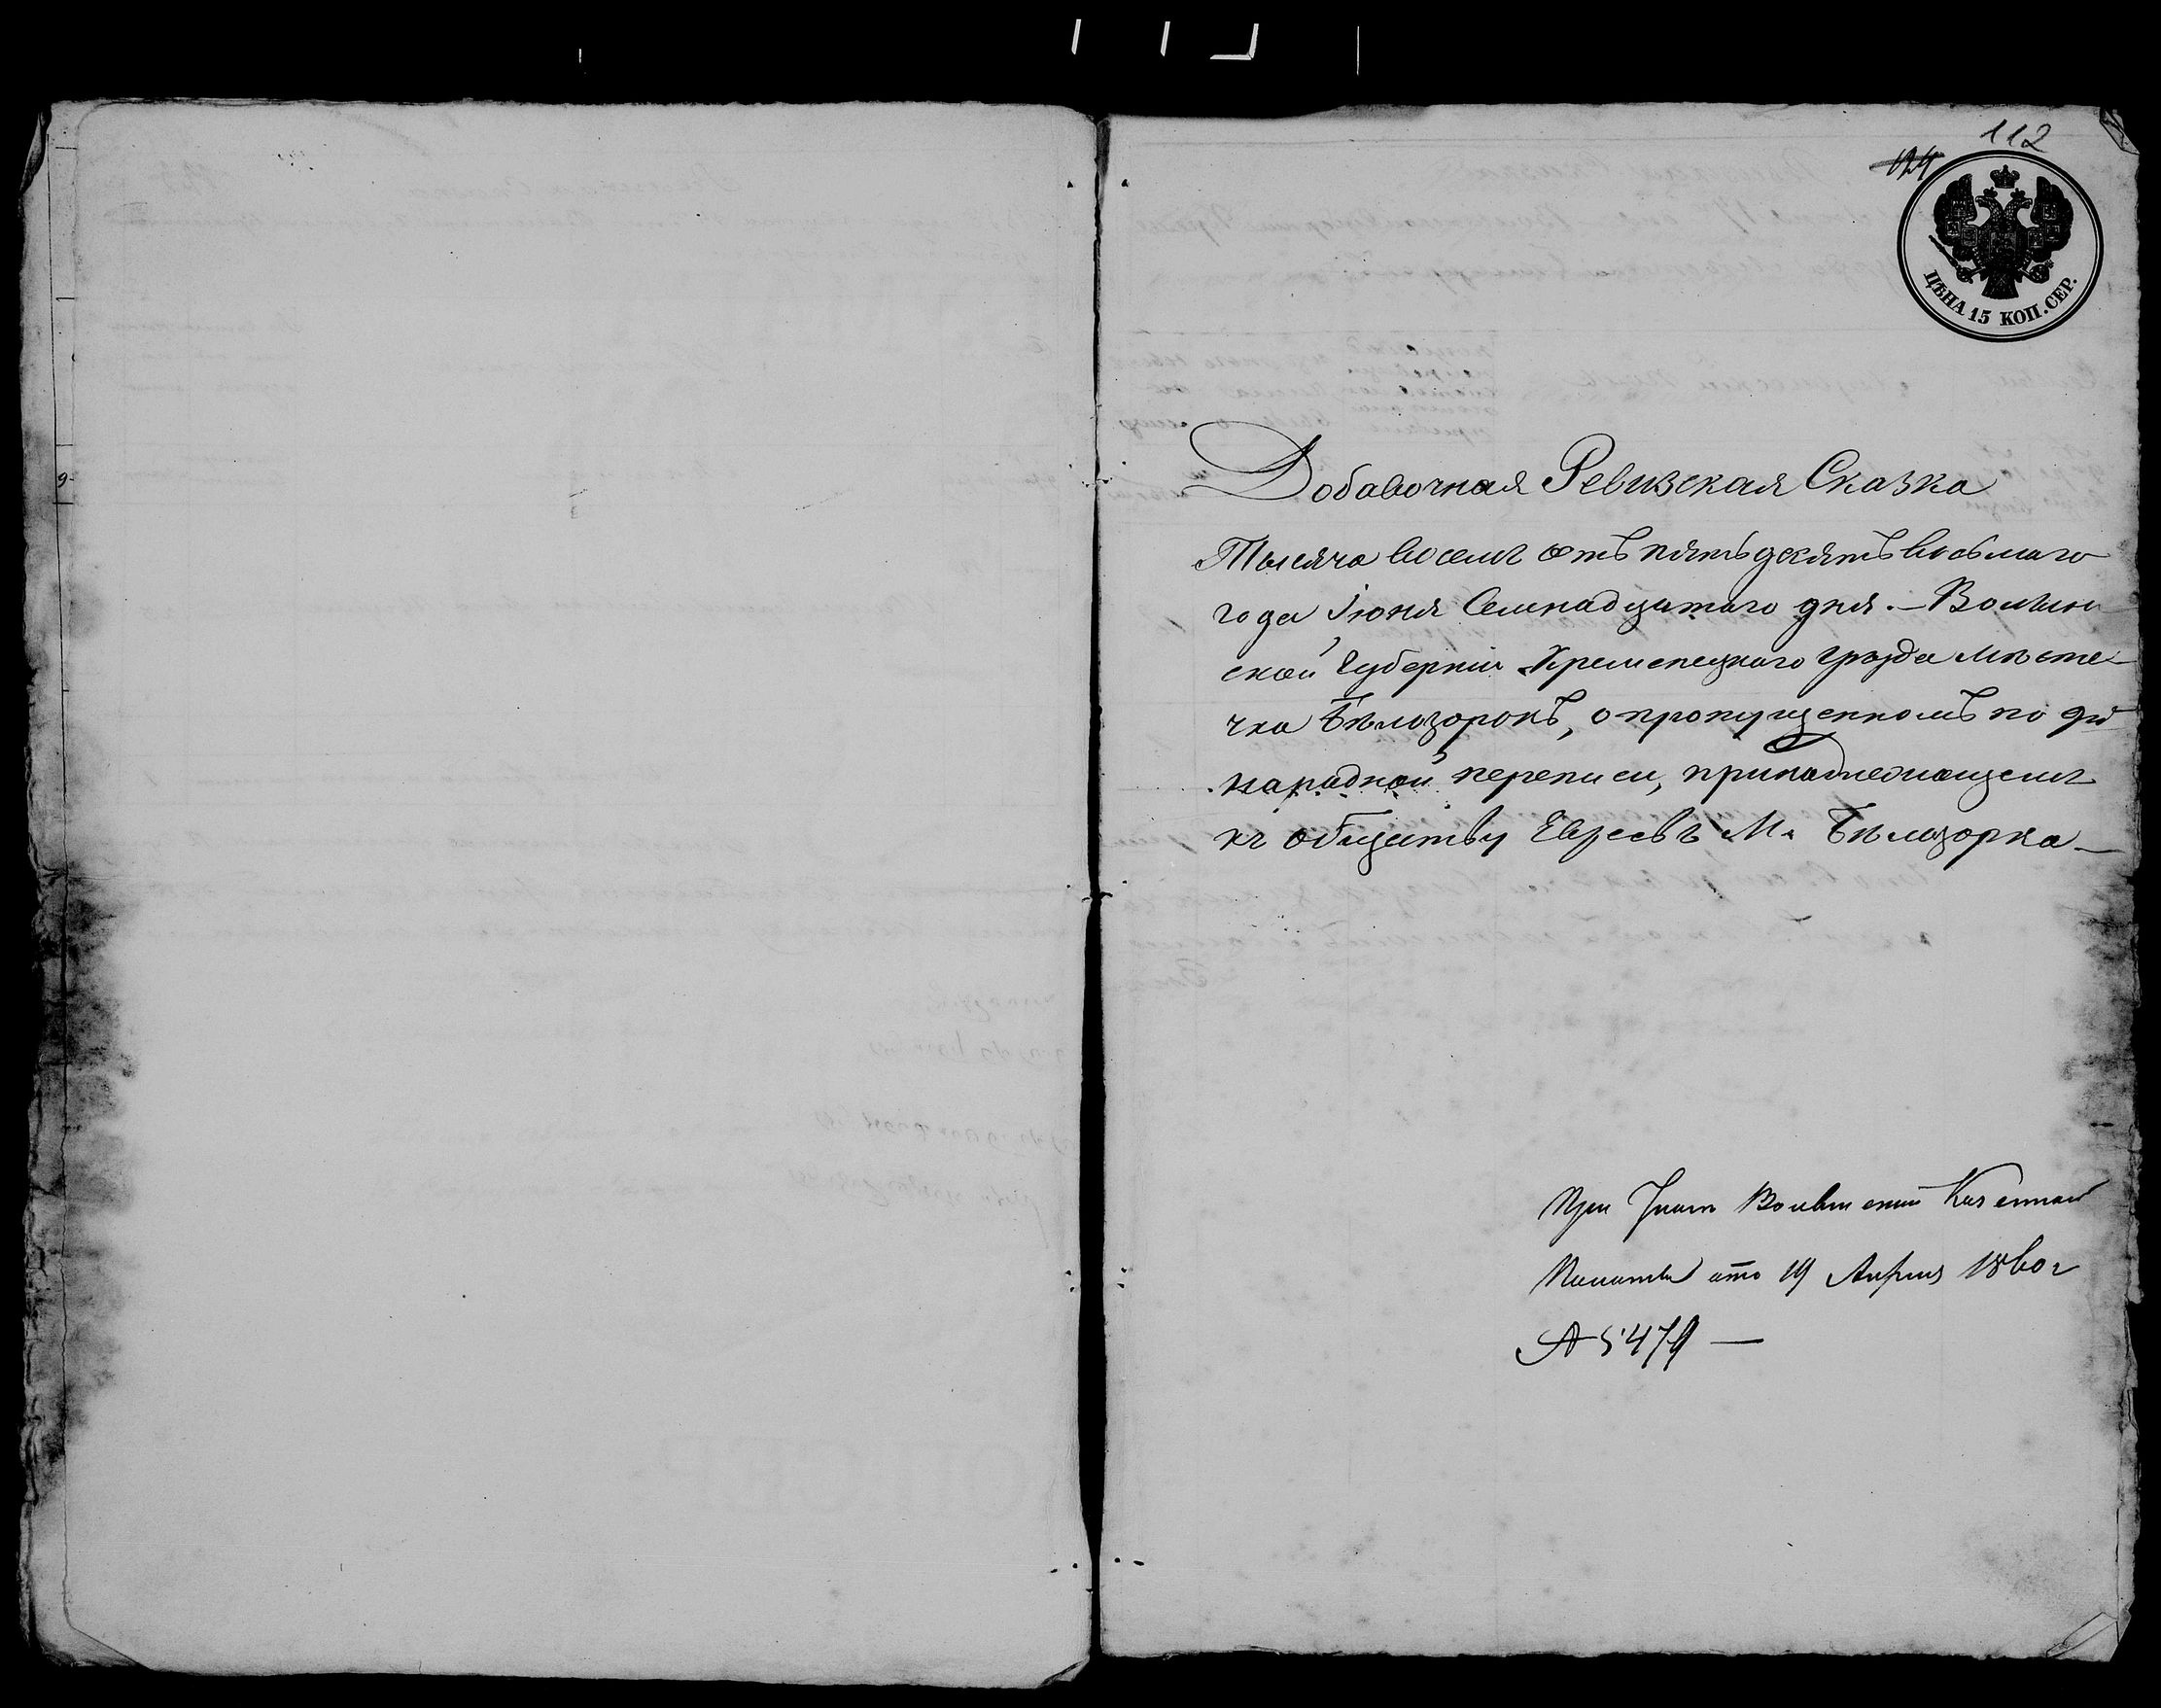 112
124
ЦѢНА 15 КОП. СЕР.
9
Добавочная Ревизская Сказка
Тысяча восемъ сотъ пятьдесятъ восьмаго
года Іюня Семнадцатаго дня. — Волын
ской Губерніи Кременецкаго Уѣзда мѣсте-
чка Бѣлозоркѣ, о пропущенномъ по
народной переписи, принадлежащемъ
къ обществу Евреевъ М. Бѣлозорка —
При Волынской Казенной
Палаты отъ 19 Апрѣля 1860 г
5479 —